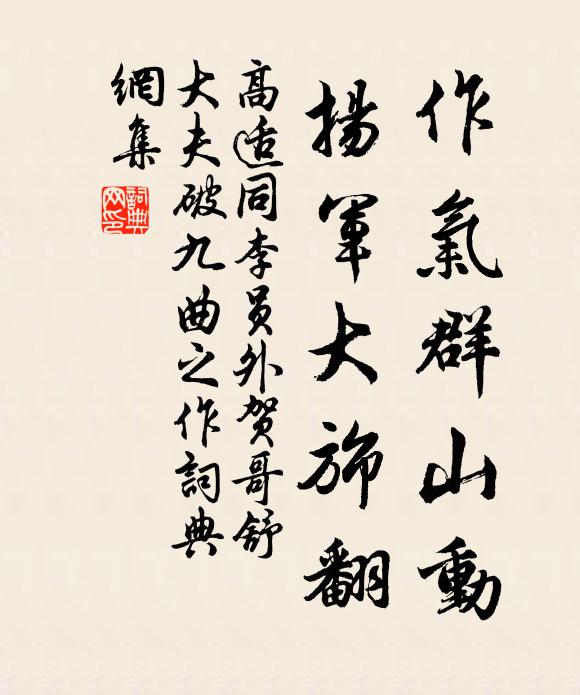 作氣群山動
揚軍大旆翻
高适同李员外贺哥舒
大夫破九曲之作詞典
網集
詞典
网印